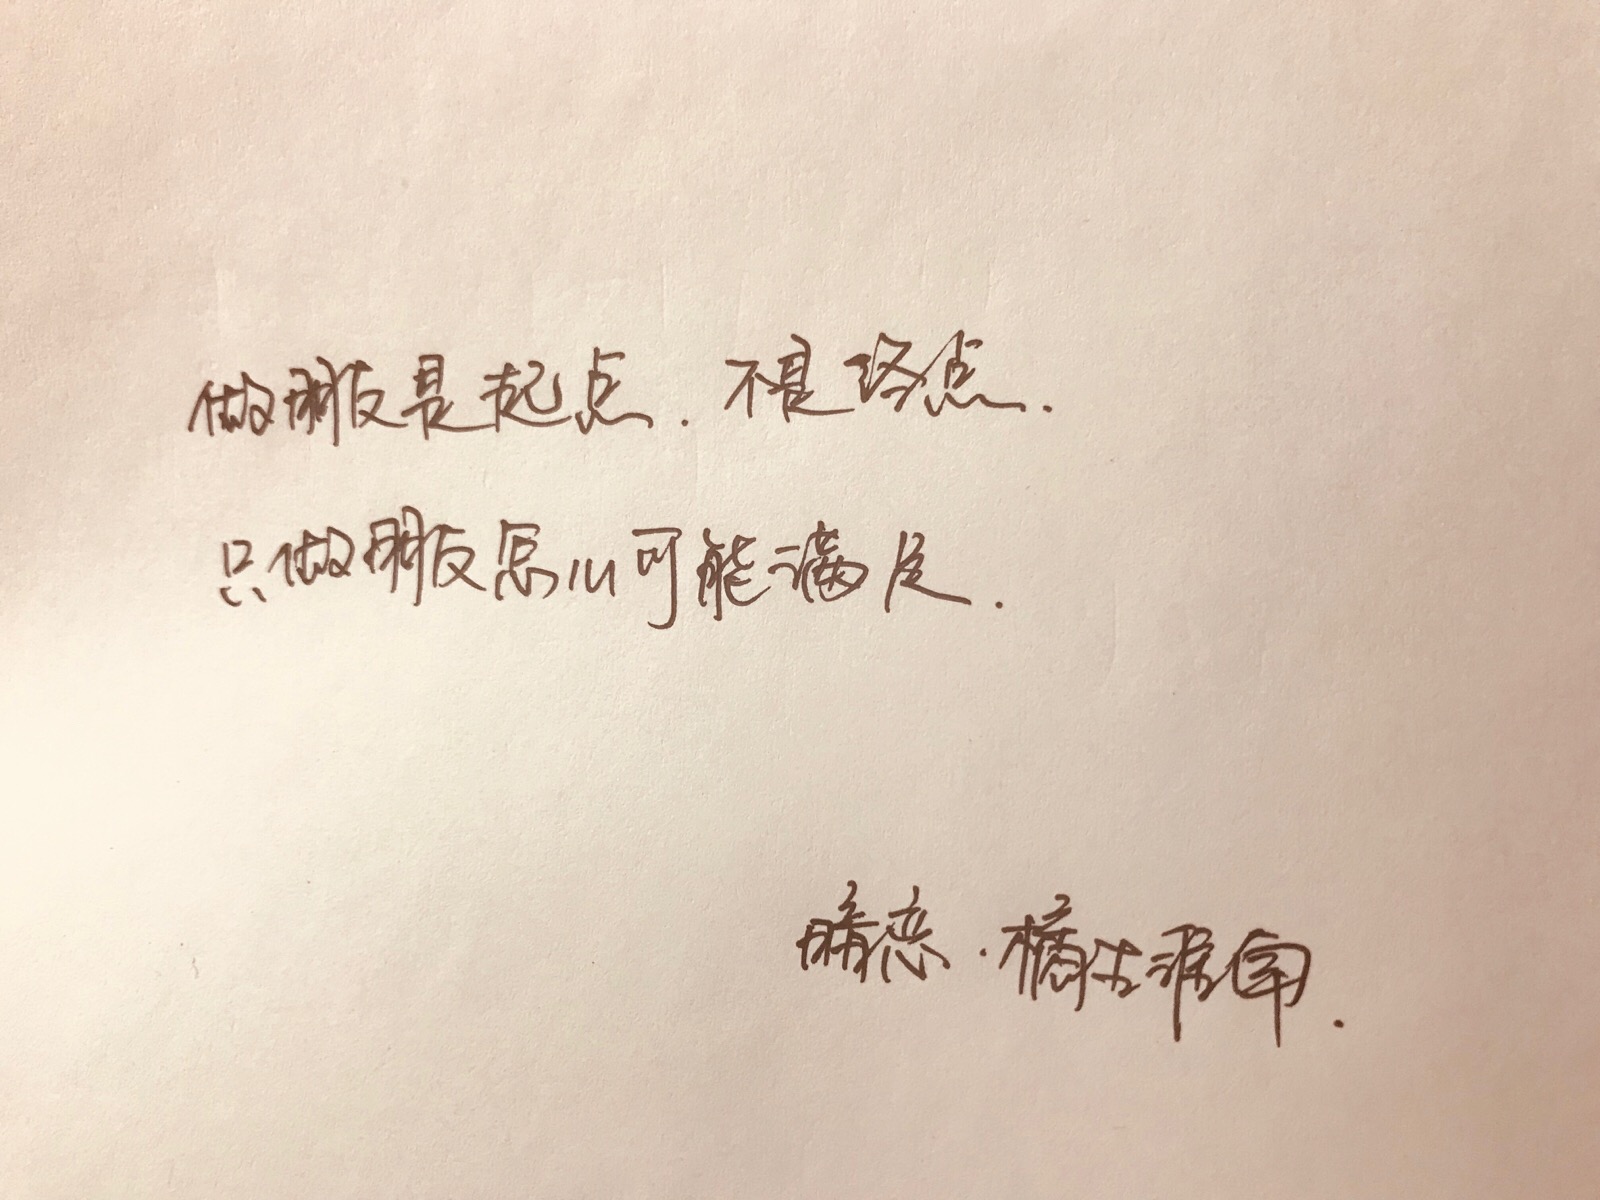 做朋友是起点.不是终点.
只做朋友怎么可能满足.
暗恋·橘生淮南.